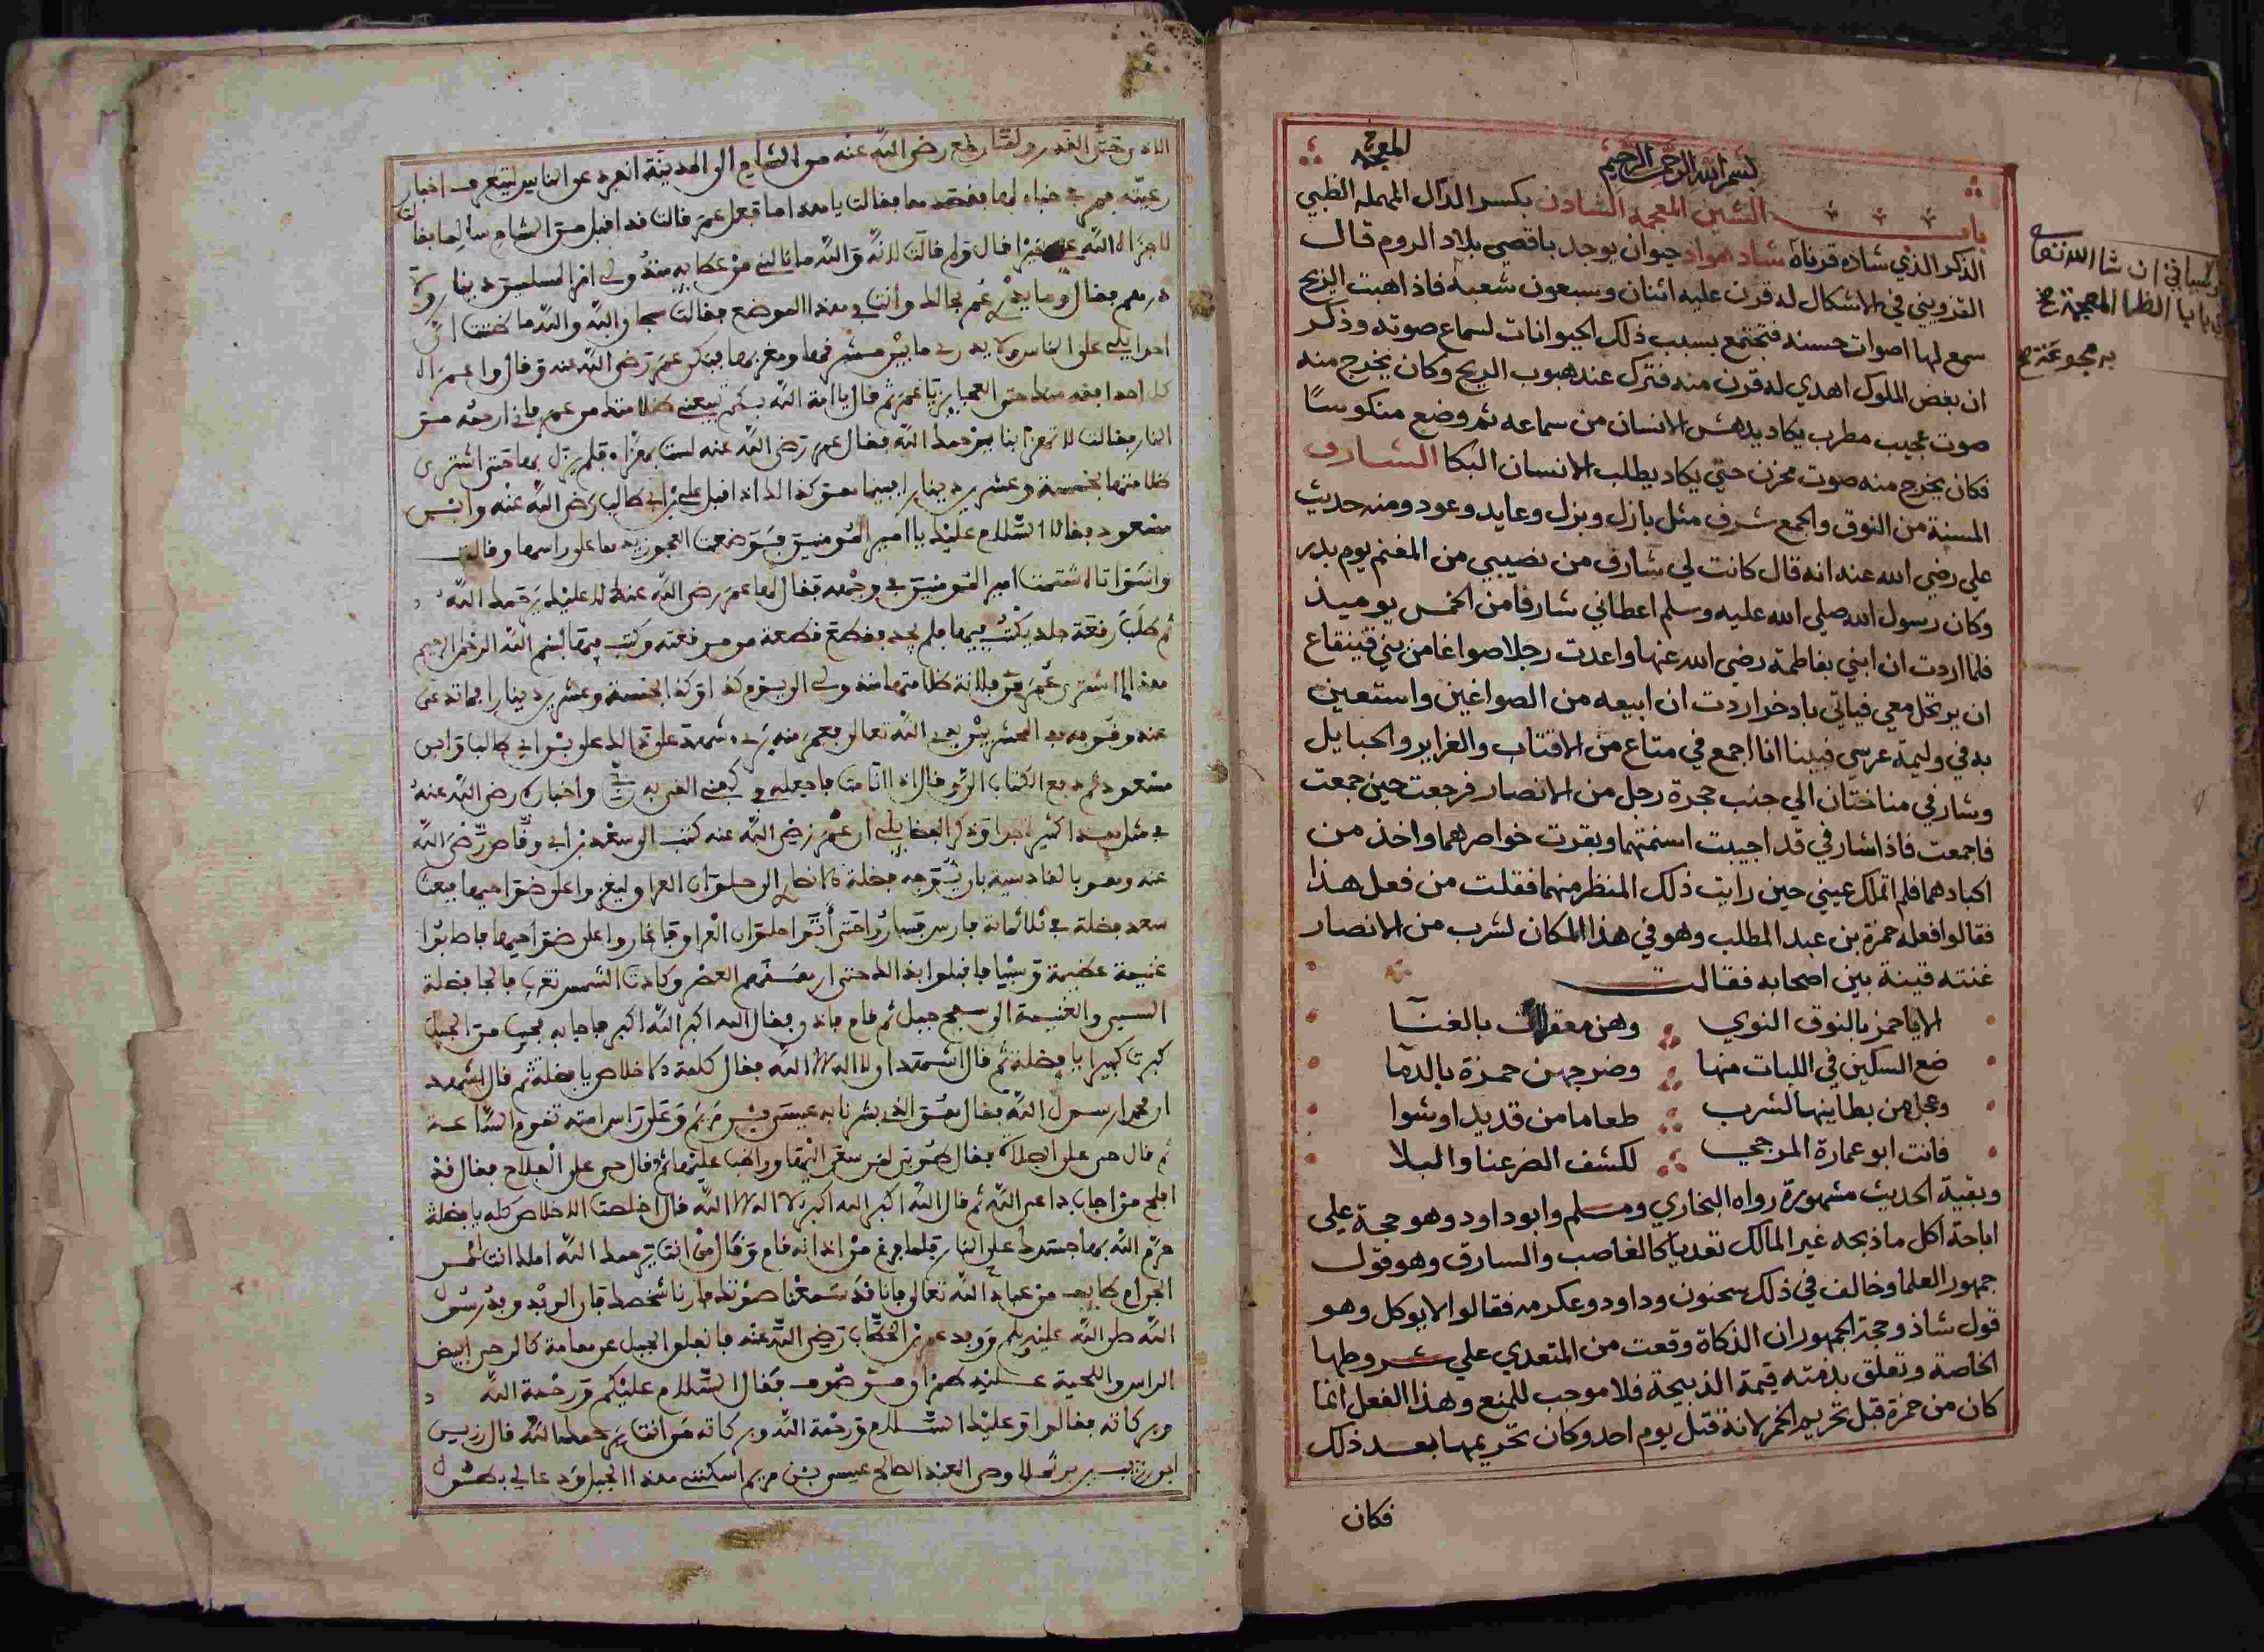 بسم الله الرحمن الرحيم
المعجمة
باب الشين المعجمة الشادن بكسر الدال المهمله الظبي
الذكر الذي شاده قرناه شاد هواد حيوان يوجد باقصي بلاد الروم قال
القزويني في الاشكال له قرن عليه اثنان وسبعون شعبة فاذا هبت الريح
سمع لها اصوات حسنه فتجتمع بسبب ذلك الحيوانات لسماع صوته وذكر
ان بعض الملوك اهدي له قرن منه فترك عند هبوب الريح وكان يخرج منه
صوت عجيب مطرب يكاد يدهش الانسان من سماعه ثم وضع منكوسا
فكان يخرج منه صوت محزن حتي يكاد يطلب الانسان البكا الشارف
المسنة من النوق والجمع شرف مثل بازل وبزل وعايد وعود ومنه حديث
علي رضي الله عنه انه قال كانت لي شارف من نصيبي من المغنم يوم بدر
وكان رسول الله صلي الله عليه وسلم اعطاني شارفا من الخمس يوميذ
فلما اردت ان ابني بفاطمة رضي الله عنها واعدت رجلا صواغا من بني قينقاع
ان يرتحل معي فياتي باذخر اردت ان ابيعه من الصواغين واستعين
به في وليمة عرسي فبينا انا اجمع في متاع من الاقتاب والغراير والحبايل
وشارفي مناختان الي جنب حجرة رجل من الانصار فرجعت حين جمعت
فاجمعت فاذا شارفي قد اجيبت اسنمتهما وبقرت خواصرهما واخذ من
اكبادهما فلم اتملك عيني حين رايت ذلك المنظر منهما فقلت من فعل هذا
فقالوا فعله حمزة بن عبد المطلب وهو في هذا المكان لشرب من الانصار
غنته قينة بين اصحابه فقالت
الا يا حمز بالنوق النوي وهن معقلات بالغنا
ضع السكين في اللبات منها وضرجهن حمزة بالدما
وعجل من بطاينها لشرب طعاما من قديد او شوا
فانت ابو عمارة المرجي لكشف الضر عنا والبلا
وبقية الحديث مشهورة رواه البخاري ومسلم وابوداود وهو حجة علي
اباحة اكل ما ذبحه غير المالك تعديا كالغاصب والسارق وهو قول
جمهور العلما وخالف في ذلك سحنون وداود وعكرمه فقالوا لا يوكل وهو
قول شاذ وحجة الجمهور ان الذكاة وقعت من المتعدي علي شروطها
الخاصة وتعلق بذمته قيمة الذبيحة فلا موجب للمنع وهذا الفعل انما
كان من حمزة قبل تحريم الخمر لانه قتل يوم احد وكان تحريمها بعد ذلك
فكان
وسياتي ان شا الله تعا
باب الظا المعجمة
رضى الله عنه من الشام الى المدينة انفرد عن الناس ليتعرف اخبار
رعيته فمر بعجوز في خباء لها فقصدها فقالت يا هذا ما فعل عمر قال قد اقبل من الشام سالما فقالت
لا جزاه الله عني خيرا قال ولم قالت لانه والله ما نالني من عطايه منذ ولي امر المسلمين دينار ولا
درهم فقال وما يدري عمر بحالك وانت في هذا الموضع فقالت سبحان الله والله ما ظننت ان
احدا يلي على الناس ولا يدري ما بين مشرقها ومغربها فبكى عمر رضى الله عنه وقال واعمراه
كل احد افقه منك حتى العجايز يا عمر ثم قال يا امة الله بكم تبيعني ظلامتك من عمر فاني ارحمه من
النار فقالت لا تهزا بنا يرحمك الله فقال عمر رضى الله عنه لست بهزاء فلم يزل بها حتى اشترى
ظلامتها بخمسة وعشرين دينارا فبينما هو كذالك اذ اقبل علي بن ابي طالب رضى الله عنه وابن
مسعود فقالا السلام عليك يا امير المومنين فوضعت العجوز يدها على راسها وقالت
واسوأتاه شتمت امير المومنين في وجهه فقال لها عمر رضى الله عنه لا عليك يرحمك الله
ثم طلب رقعة جلد يكتب فيها فلم يجد فقطع قطعة من مرقعته وكتب فيها بسم الله الرحمن الرحيم
هذا ما اشترى عمر من فلانة ظلامتها منذ ولي الى يوم كذا وكذا بخمسة وعشرين دينارا فما تدعى
عند وقوفه في المحشر بين يدي الله تعالى فعمر منه بري شهد على ذالك علي بن ابي طالب وابن
مسعود ثم دفع الكتاب الى وقال اذا انا مت فاجعله في كفني القى به ربي واخباره رضى الله عنه
في مثل هذا كثيرة جدا وذكر الفضايلي ان عمر رضى الله عنه كتب الى سعد بن ابي وقاص رضى الله
عنه وهو بالقادسية بان يوجه نضلة الانصاري الى حلوان العراق ليغزوا على ضواحيها فبعث
سعد نضلة في ثلاثماية فارس فساروا حتى أتوا حلوان العراق فاغاروا على ضواحيها فاصابوا
غنيمة عظيمة وسبيا فاقبلوا بذالك حتى ارهقهم العصر وكادت الشمس تغرب فالجا نضلة
السبي والغنيمة الى سفح جبل ثم قام فاذن فقال الله اكبر الله اكبر فاجابه مجيب من الجبل
كبرت كبيرا يا نضلة ثم قال اشهد ان لا اله الا الله فقال كلمة الاخلاص يا نضلة ثم قال اشهد
ان محمدا رسول الله فقال هو الذي بشرنا به عيسى بن مريم وعلى راس امته تقوم الساعة
ثم قال حى على الصلاة فقال طوبى لمن سعى اليها وواظب عليها ثم قال حى على الفلاح فقال قد
افلح من اجاب داعي الله ثم قال الله اكبر الله اكبر لا اله الا الله قال اخلصت الاخلاص كله يا نضلة
حرم الله بها جسدك على النار فلما فرغ من اذانه قام وقال من انت يرحمك الله املك انت ام من
الجن ام طايف من عباد الله تعالى فانا قد سمعنا صوتك فارنا شخصك فان الوفد وفد رسول
الله صلى الله عليه وسلم ووفد عمر بن الخطاب رضى الله عنه فانفلق الجبل عن هامة كالرحى ابيض
الراس واللحية عليه طمران من صوف فقال السلام عليكم ورحمة الله
وبركاته فقالوا وعليك السلام ورحمة الله وبركاته من انت يرحمك الله قال زريب
ابن برثملا وصى العبد الصالح عيسى بن مريم اسكنني هذا الجبل ودعا لي بطول